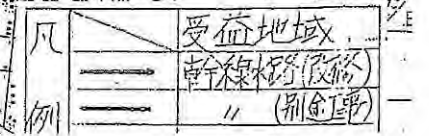 凡例
受益地域
幹線水路(改修)
〃 (別途工事)